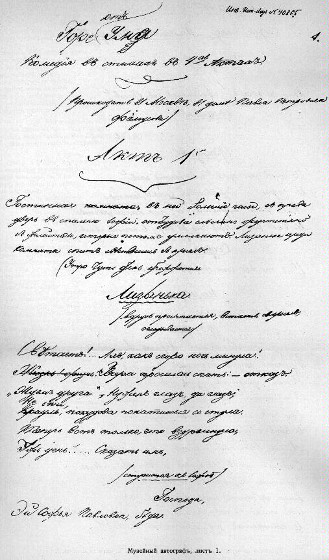 Горе отъ Ума
1.
Комедія въ стихахъ въ 4хъ Актахъ
(происходитъ въ Москвѣ, въ домѣ Павла Петровича
Фамусова)
Актъ 1й
Гостинная комната, въ ней часы, справа
дверь въ спальню Софіи, откудова слышно фортепіано
съ флейтою, которыя потомъ умолкаютъ. Лизанька среди
комнаты спитъ
(Утро, чуть день брезжится
Лизанька
(вдругъ просыпается, встаетъ съ креселъ,
оглядывается)
Свѣтаетъ!... Ахъ, какъ скоро ночь минула!
Вчера просилась спать – отказъ.
"Ждемъ друга", Нуженъ глазъ, да глазъ;
Не спи, покудова не скатишься со стула.
Теперь вотъ только что вздремнула,
Ужъ день!.... Сказать имъ,
(стучится къ Софіи)
Господа,
Эй Софья Павловна, бѣда.
Музейный автографъ, листъ 1.